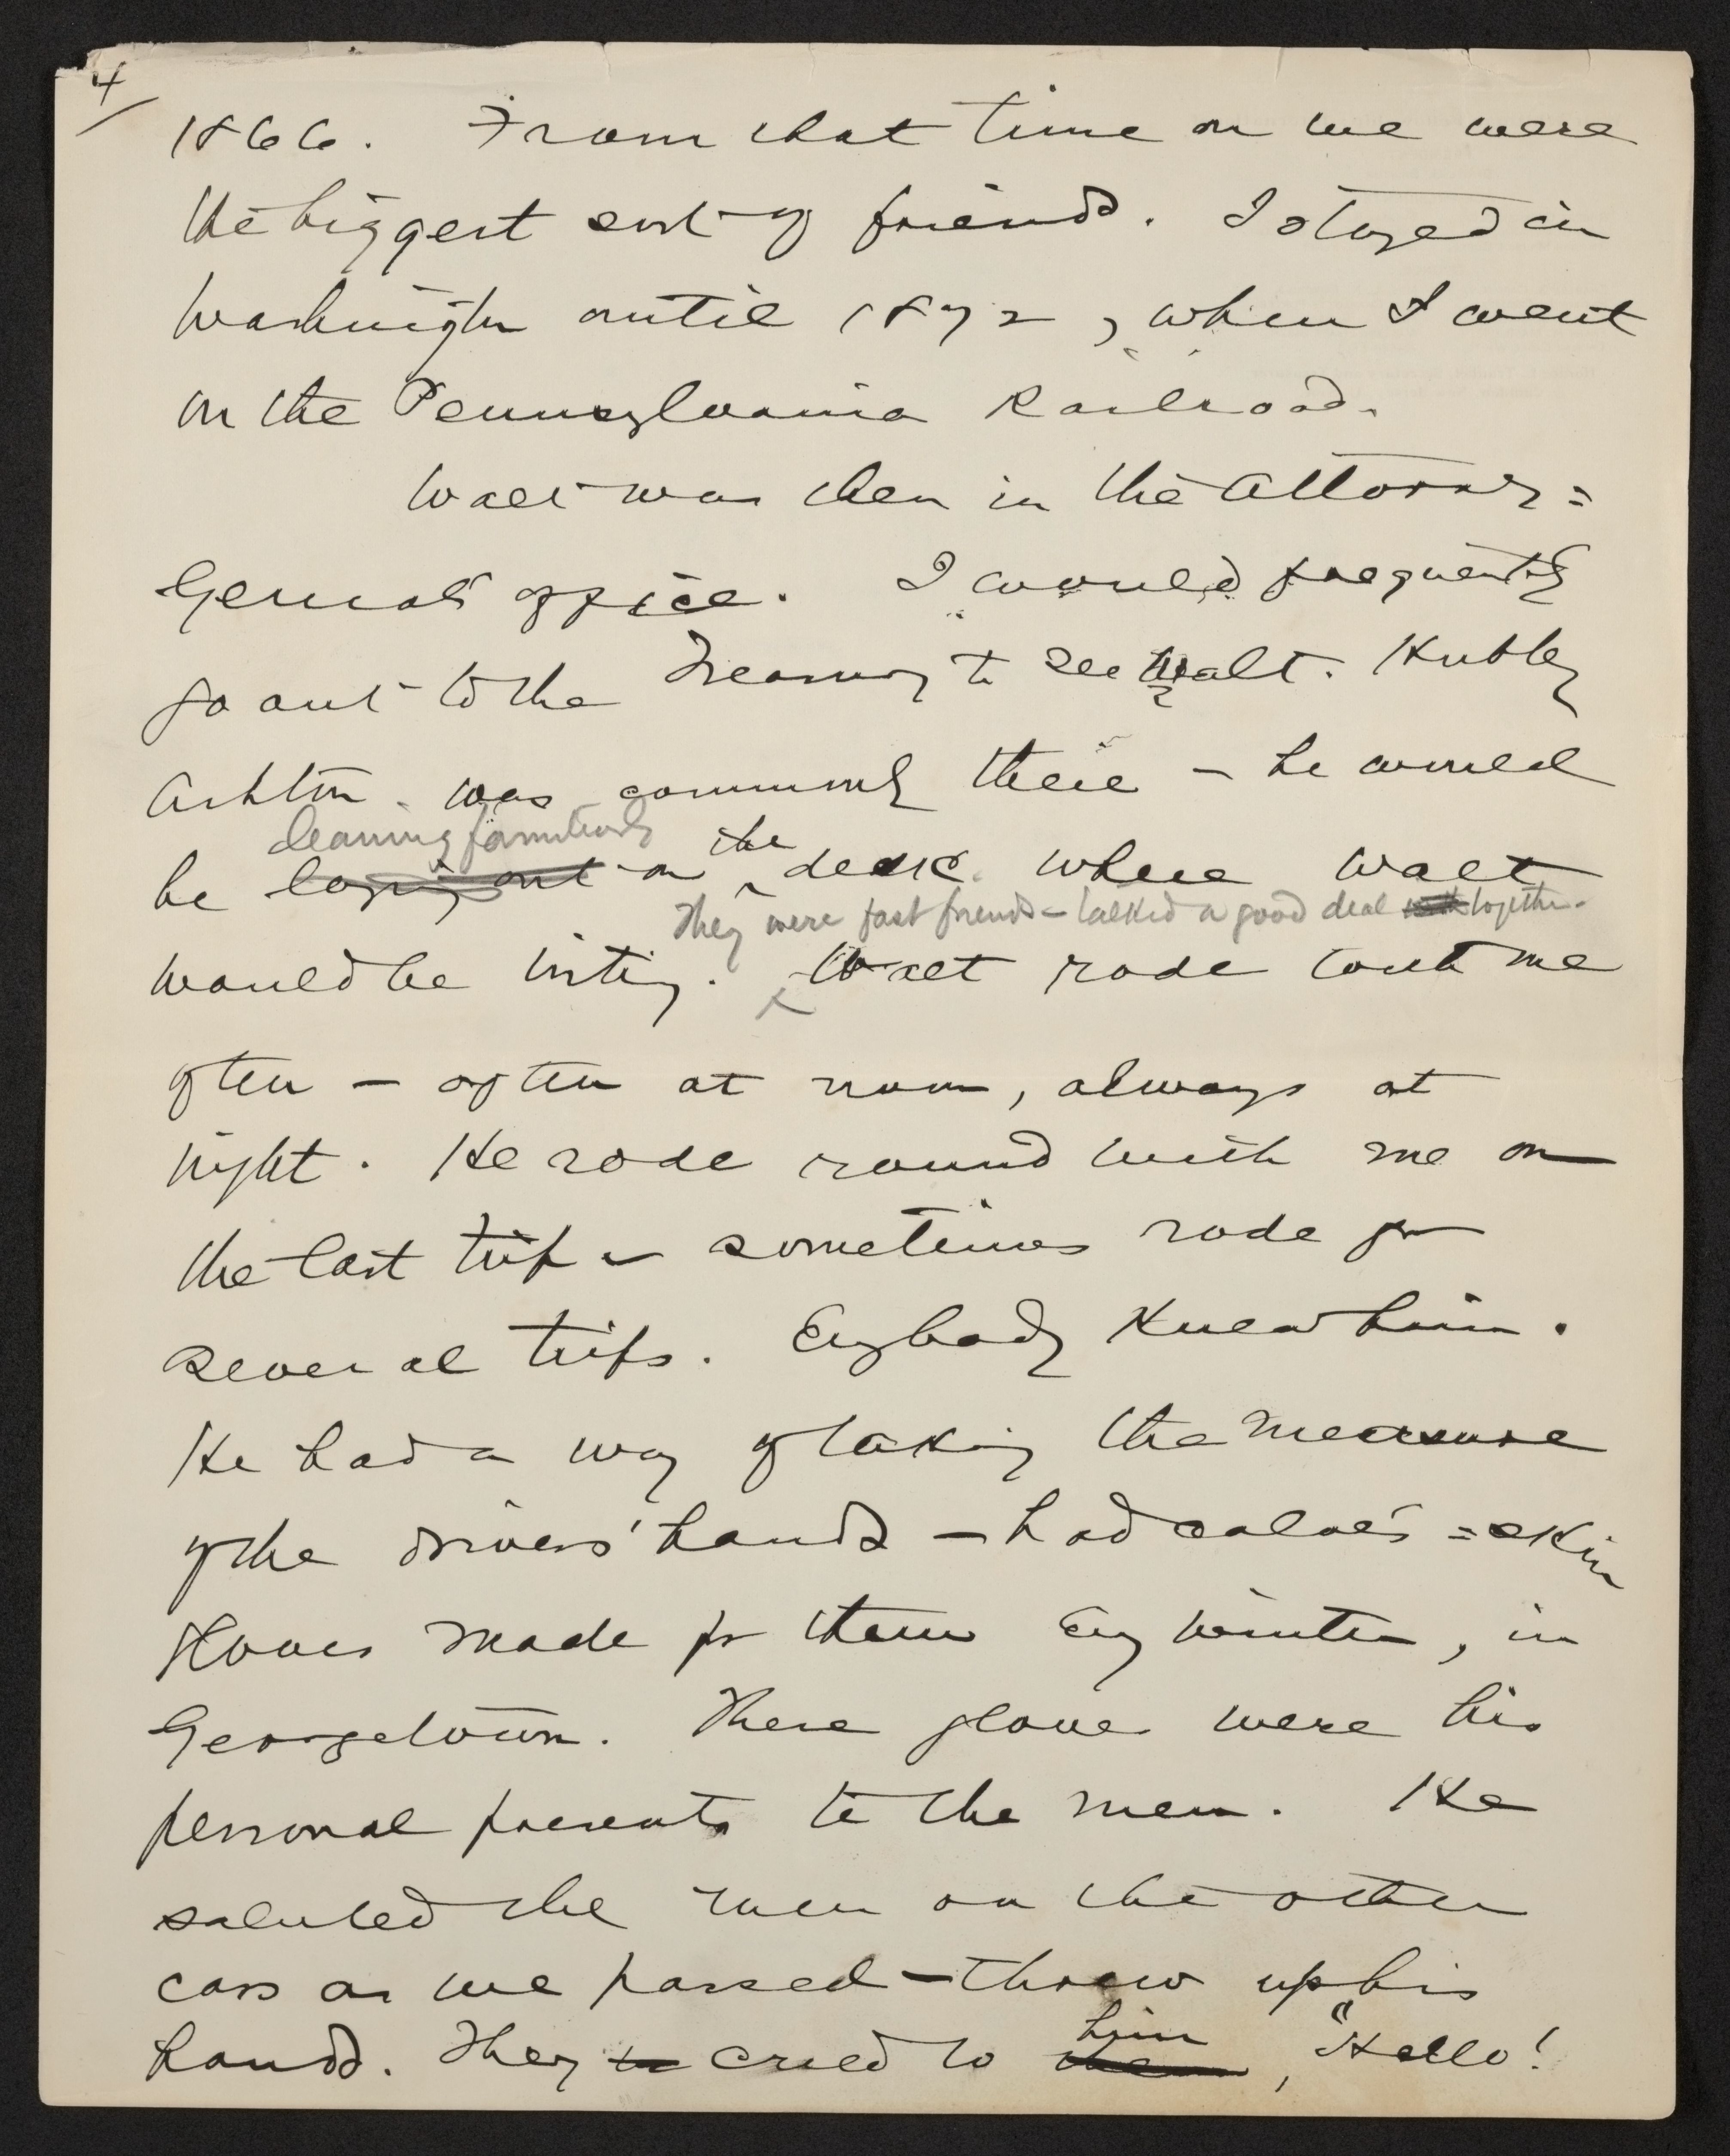 4
1866. From that time on we were
the biggest sort of friends. I stayed in
Washington until 1872, when I went
on the Pennsylvania Railroad.
Walt was then in the Attorney=
General's office. I would frequently
go out to the Treasury to see Walt. Hubley
Ashton was commonly there – he would
leaning familiarly
be laying out on the desk where Walt
They were fast friends – talked a good deal together.
would be writing. Walt rode with me
often – often at noon, always at
night. He rode round with me on
the last trip – sometimes rode for
several trips. Everybody knew him.
He had a way of taking the measure
of the drivers' hands – had calves'=skin
gloves made for them every winter, in
Georgetown. These gloves were his
personal presents to the men. He
saluted the men on the other
cars as we passed – threw up his
him
hands. They cried to them, "Hello!